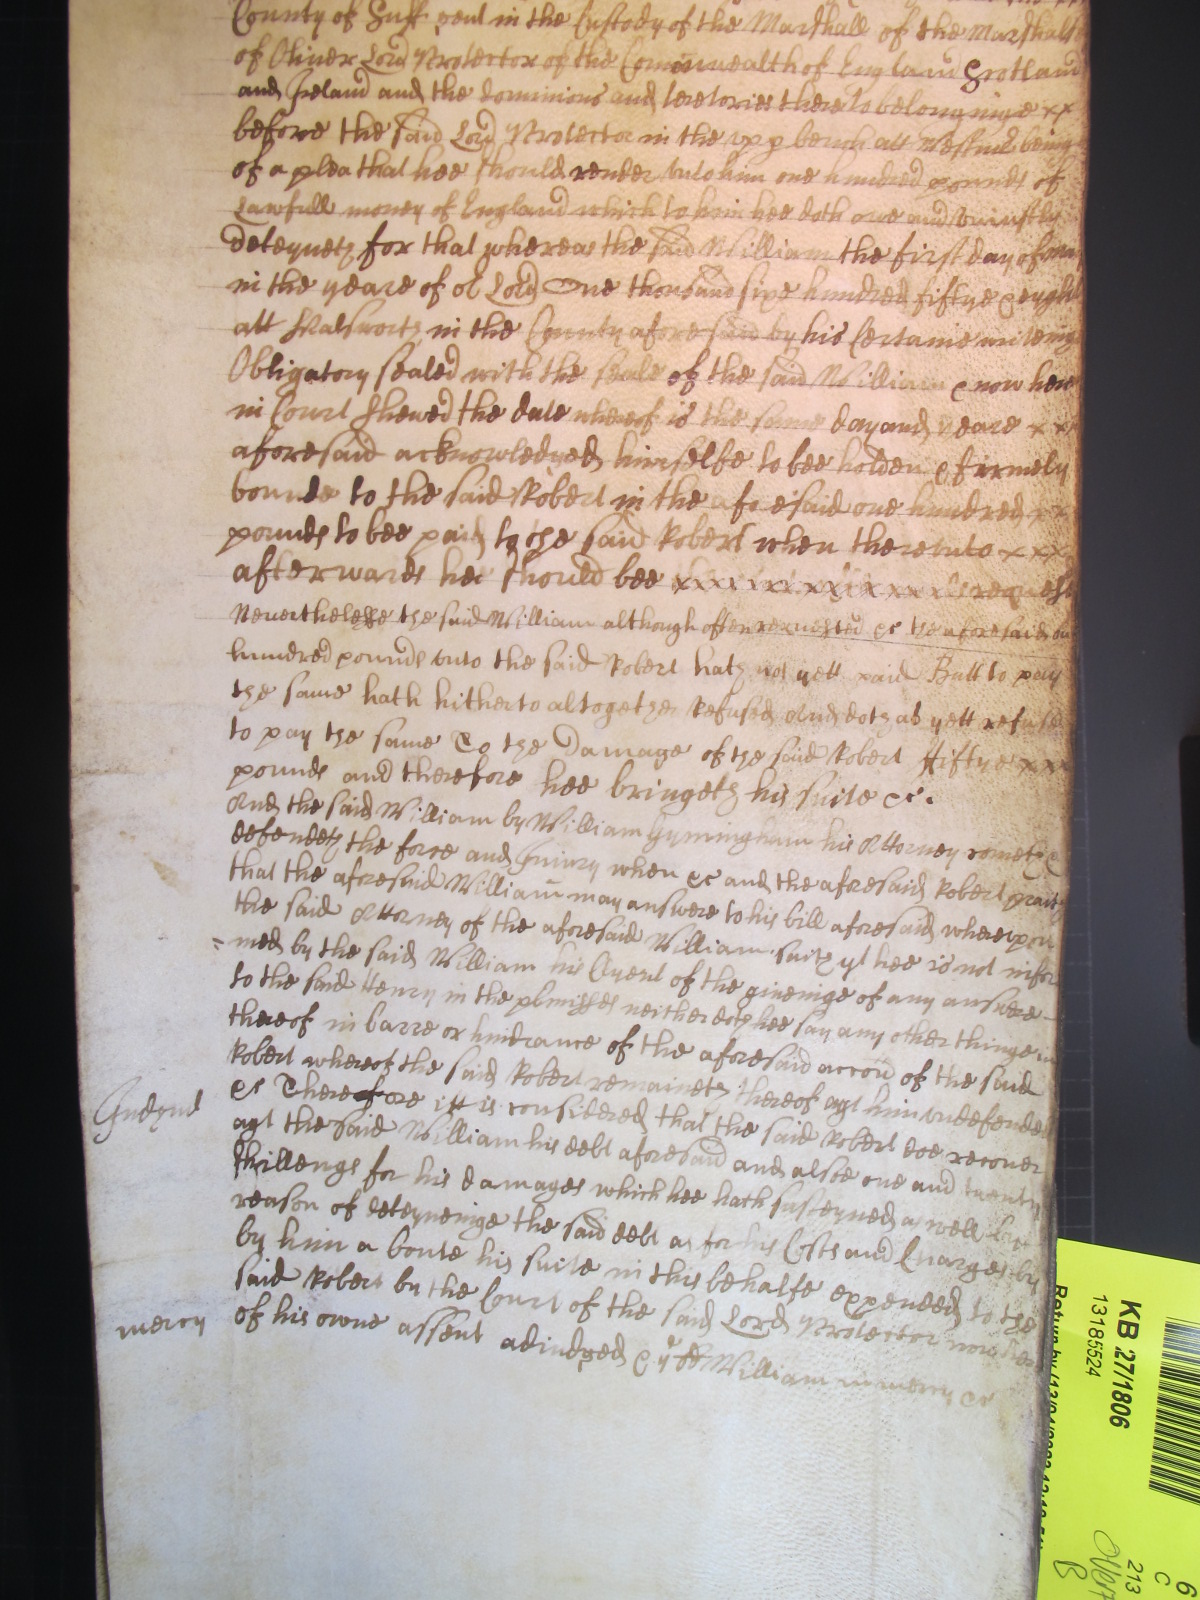 County of Suff gent in the Custody of the Marshall of the Marshals
of Oliver Lord Protector of the Comonwealth of England Scotland
and Ireland and the dominions and teretories thereto belonginge xx
before the said Lord Protector in the upp bench att Westm being
of a plea that hee should render unto him one hundred pounds of
Lawfull money of England which to him hee doth owe and uniustly
deteyneth for that whereas the said William the first day of May
in the yeare of or Lord One thousand sixe hundred fiftye & eyght
att Halsworth in the County aforesaid by his Certaine writeing
Obligatory sealed with the seale of the said William & now here
in Court shewed the date whereof is the same day and yeare xx
aforesaid acknowledged himselfe to bee holden & firmely
bounde to the said Robert in the aforesaid one hundred xx
pounds to bee paid to the said Robert when thereunto xxx
afterwards hee should bee xxxxxxxxxxxxx request
Neverthelesse the said William although often requested &c the aforesaid one
hundred pounds unto the said Robert hath not yett paid Butt to pay
the same hath hitherto altogether Refused And doth as yett refuse
to pay the same To the Damage of the said Robert ffiftye xxx
pounds and therefore hee bringeth his suite &c.
And the said William by William Gymingham his Attorney cometh &
defendeth the force and Iniury when &c and the aforesaid Robert prait
that the aforesaid William may answere to his bill aforesaid whereupon
the said Attorney of the aforesaid William saith yt hee is not infor
med by the said William his Clyent of the giveinge of any answere
to the said Henry in the pmisses neither doth hee say any other thinge in
thereof in barre or hindrance of the aforesaid accon of the said
Robert whereof the said Robert remaineth thereof agt him undefended
Iudgmt
&c Therefore itt is considered that the said Robert doe recover
agt the said William his debt aforesaid and alsoe one and twenty
shillengs for his damages which hee hath susteyned as well by
reason of deteyneinge the said debt as for his Costs and Charges by
by him a boute his suite in this behalfe expended to the
said Robert by the Court of the said Lord Protector now here
mercy
of his owne assent adiudged & ye sd William in mercy &c
KB 27/1806
13185524
213
C
6
B